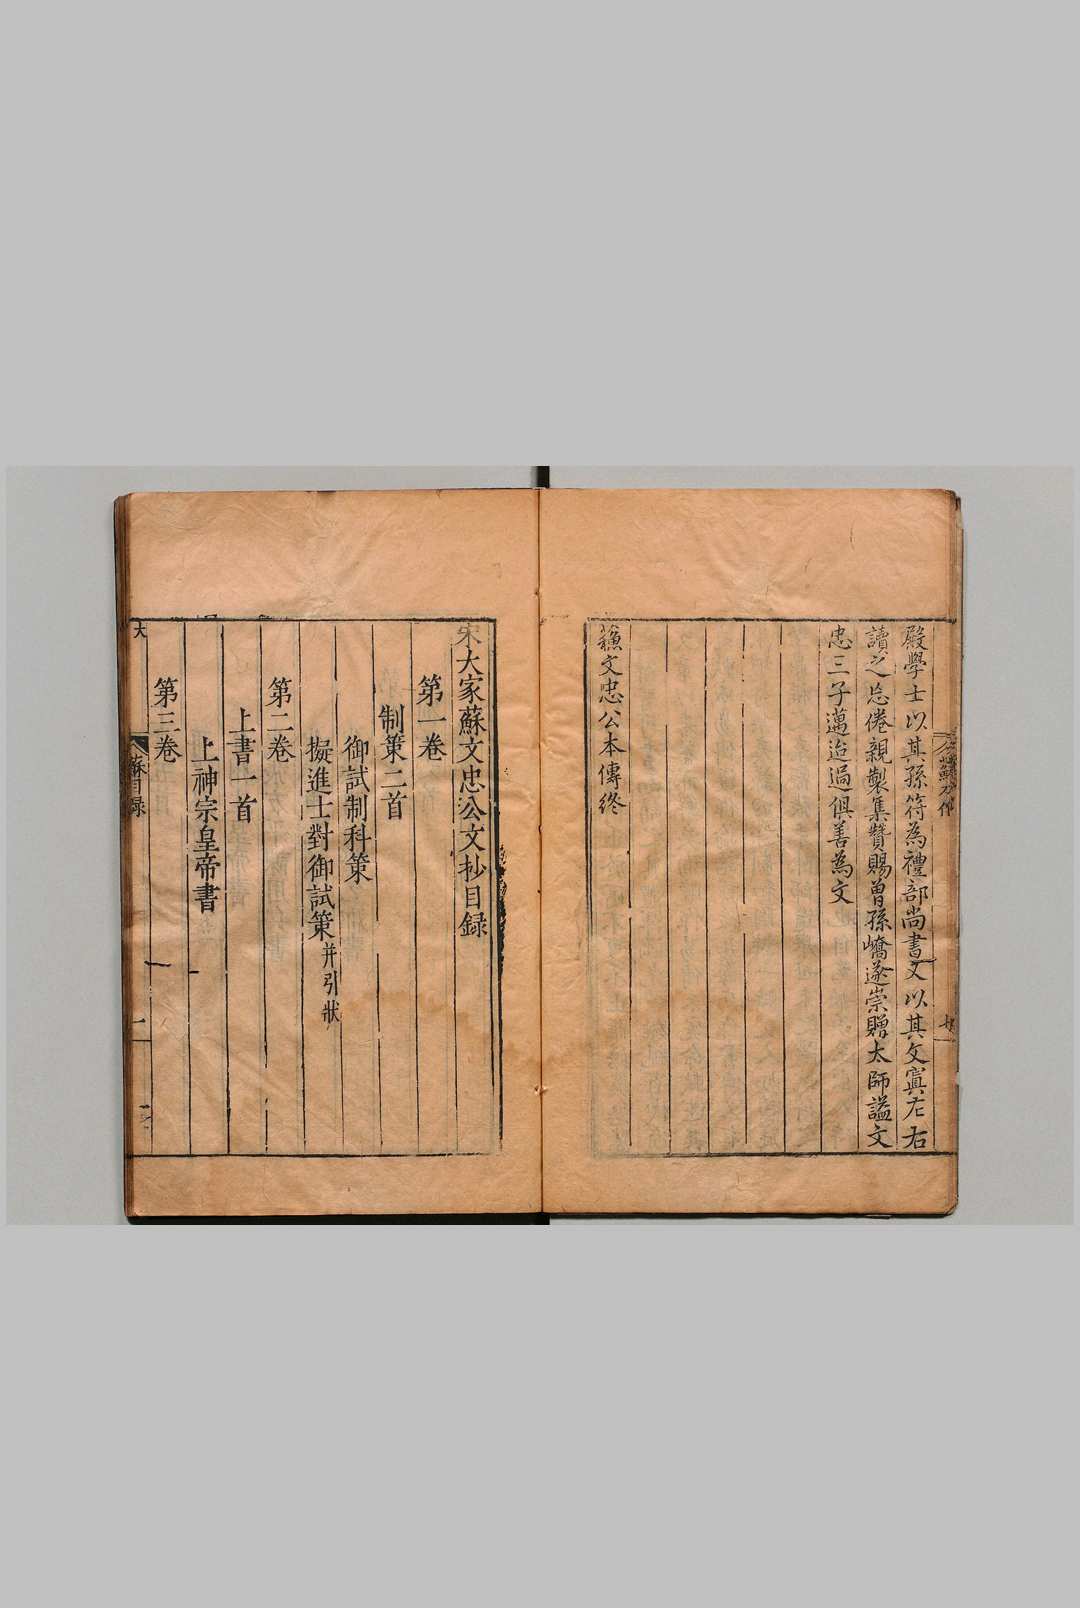 殿學士以其孫符為禮部尚書又以其文寘左右
讀之忘倦親製集贊賜曾孫嶠遂崇贈太師謚文
忠三子邁迨過俱善為文
蘇文忠公本傳終
宋大家蘇文忠公文抄目録
第一卷
制策二首
御試制科策
擬進士對御試策并引狀
第二卷
上書一首
上神宗皇帝書
第三卷
大
蘇目録
一